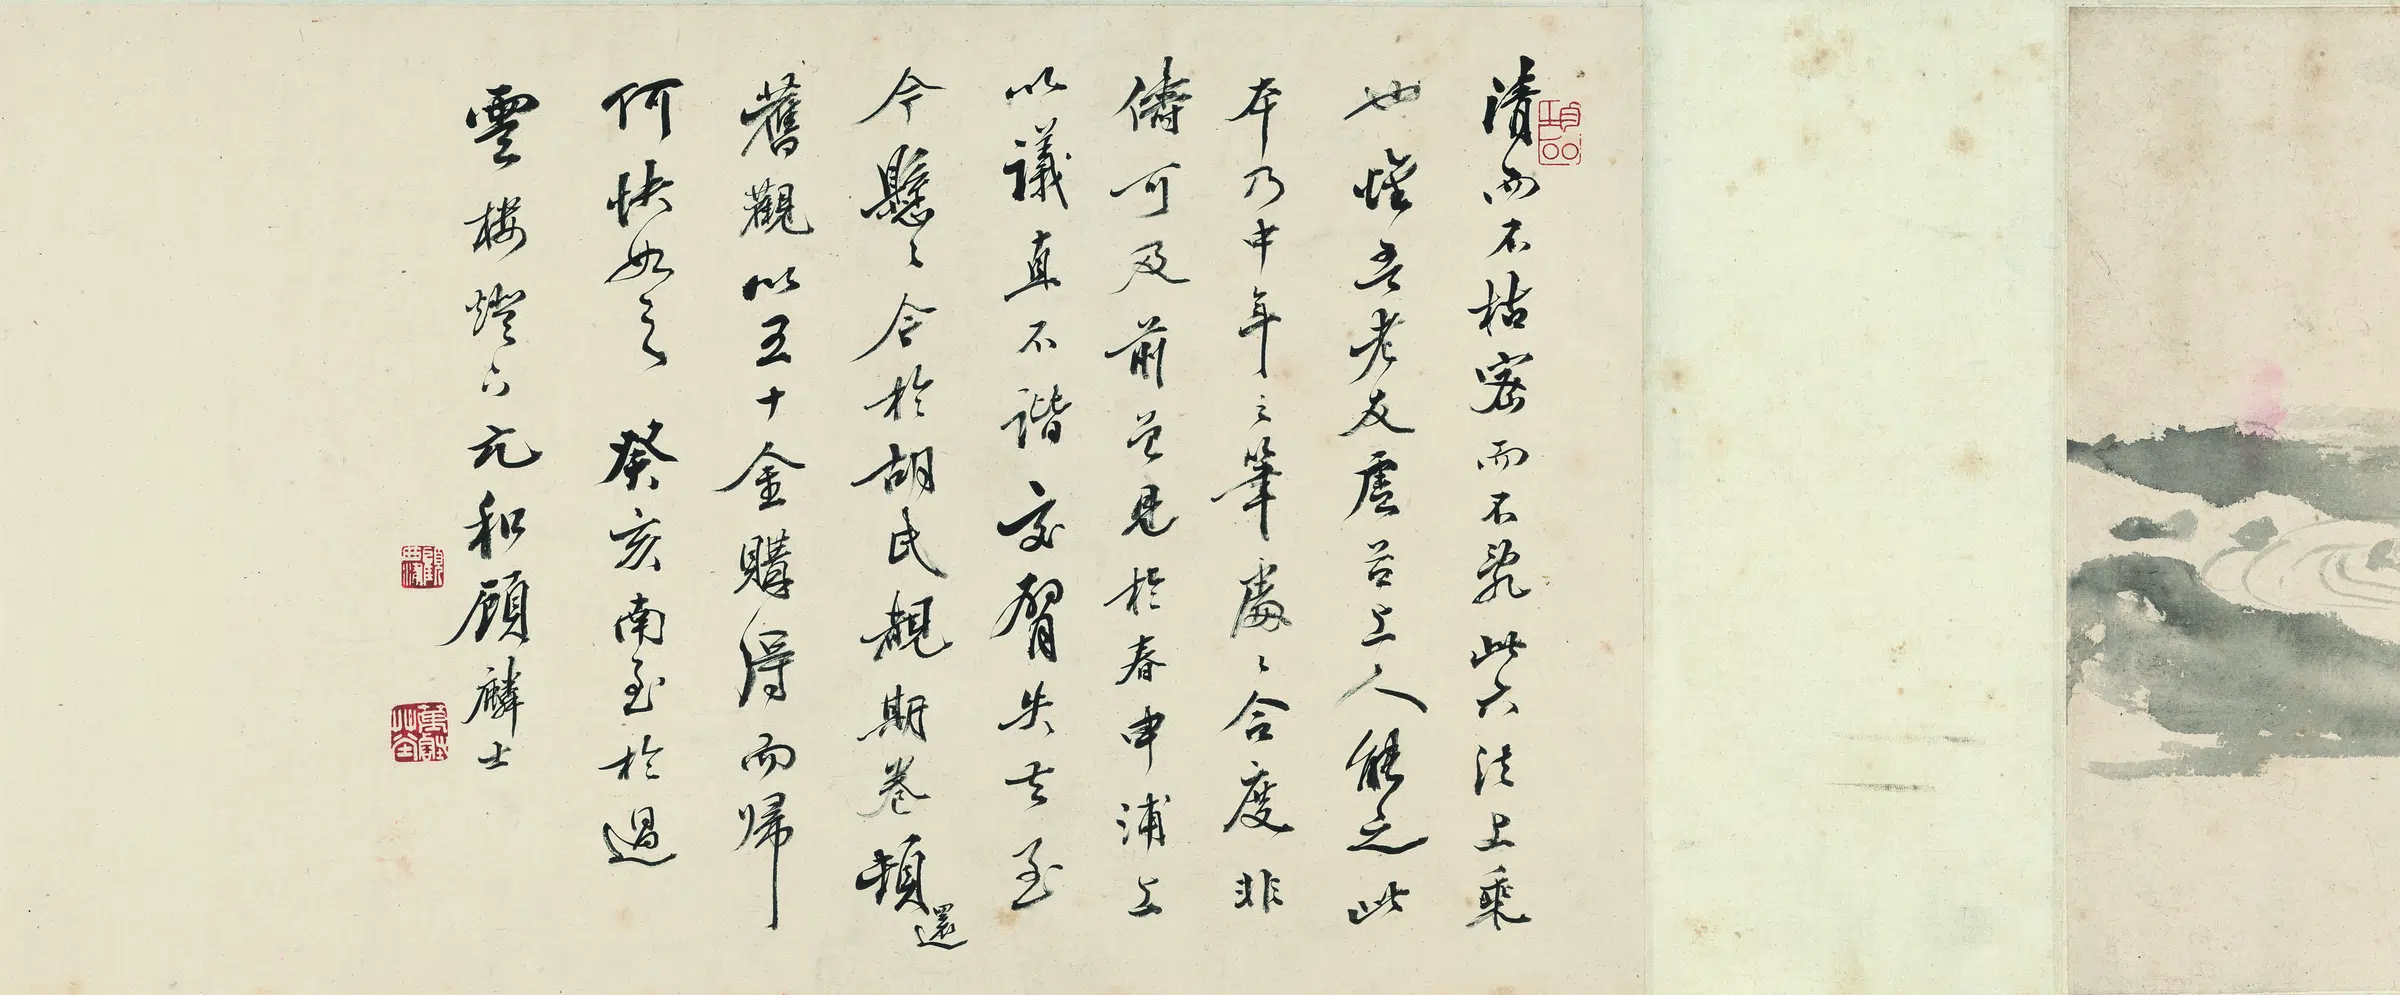 清而不枯密而不乱此六法上乘
也惟吾老友虚谷上人能之此
本乃中年之筆處〻合度非
儔可及前曾見於春申浦上
以議直不諧交臂失去至
今懸〻今於胡氏觀期卷頓還
舊觀以五十金購得而歸
何快如之 癸亥南至於過
雲樓燈下元和顧麟士